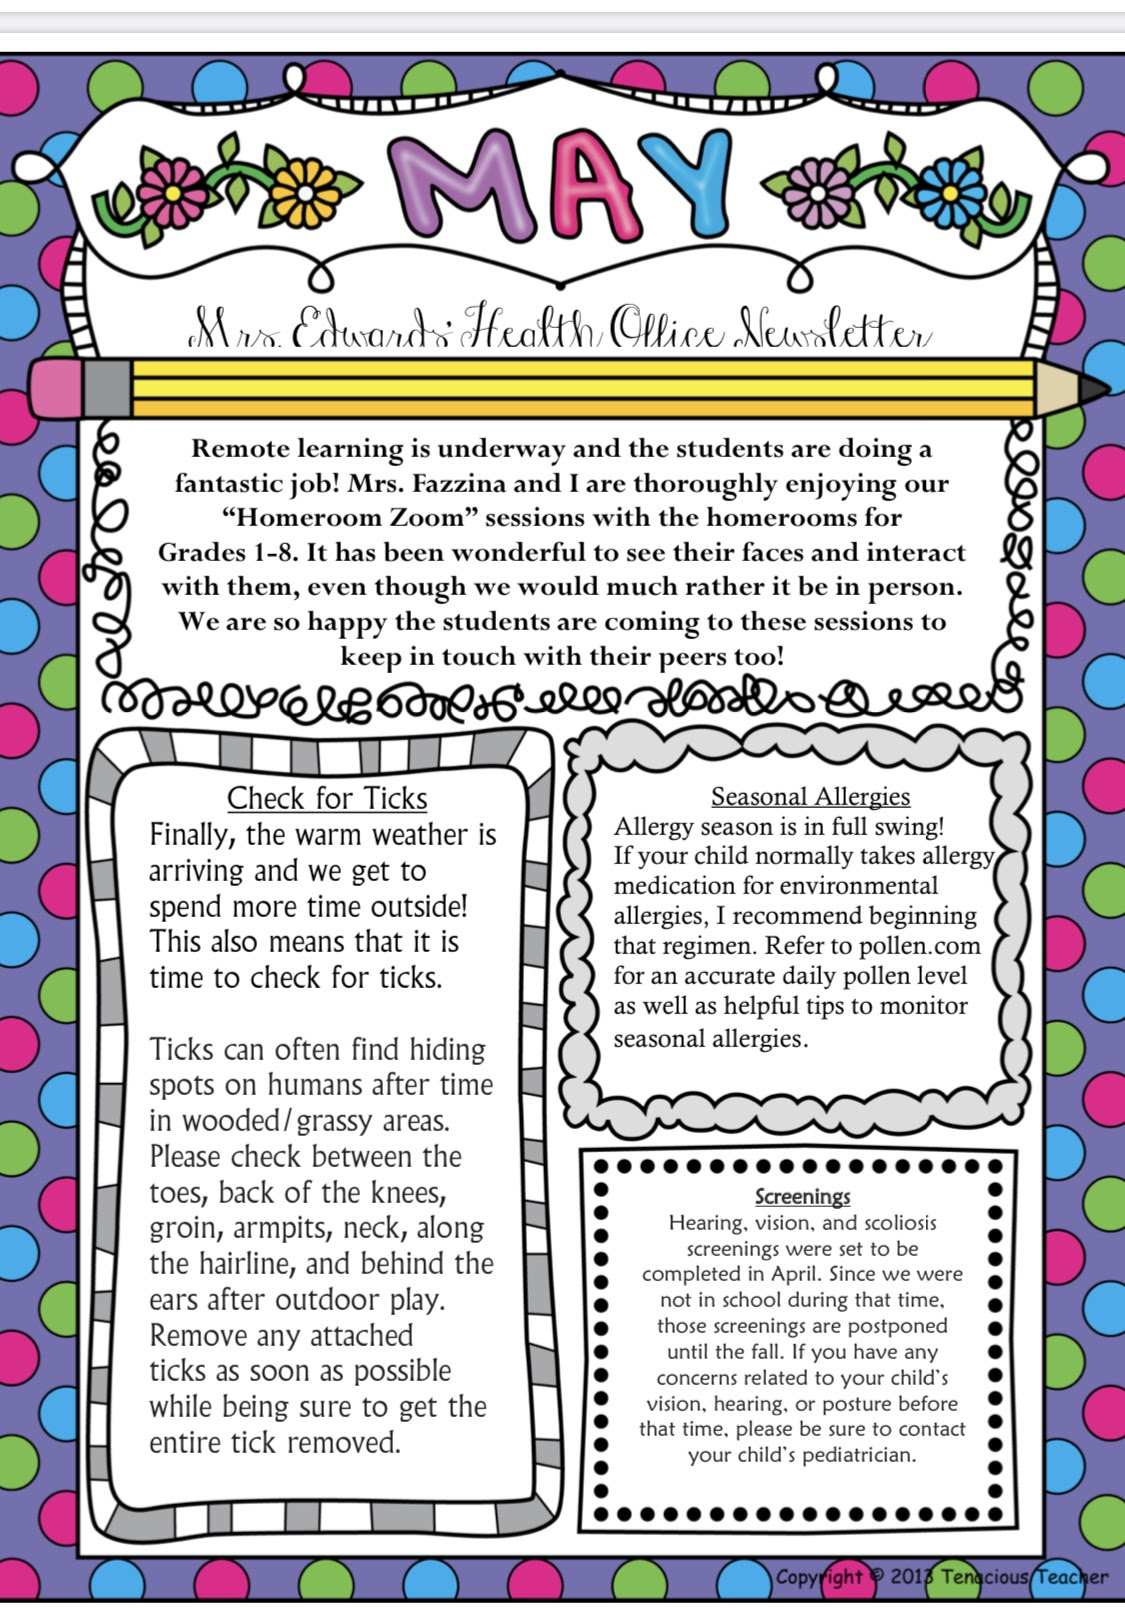 MAY
Mrs. Edwards' Health Office Newsletter
Remote learning is underway and the students are doing a
fantastic job! Mrs. Fazzina and I are thoroughly enjoying our
“Homeroom Zoom” sessions with the homerooms for
Grades 1-8. It has been wonderful to see their faces and interact
with them, even though we would much rather it be in person.
We are so happy the students are coming to these sessions to
keep in touch with their peers too!
Check for Ticks
Finally, the warm weather is
arriving and we get to
spend more time outside!
This also means that it is
time to check for ticks.
Ticks can often find hiding
spots on humans after time
in wooded/grassy areas.
Please check between the
toes, back of the knees,
groin, armpits, neck, along
the hairline, and behind the
ears after outdoor play.
Remove any attached
ticks as soon as possible
while being sure to get the
entire tick removed.
Seasonal Allergies
Allergy season is in full swing!
If your child normally takes allergy
medication for environmental
allergies, I recommend beginning
that regimen. Refer to pollen.com
for an accurate daily pollen level
as well as helpful tips to monitor
seasonal allergies.
Screenings
Hearing, vision, and scoliosis
screenings were set to be
completed in April. Since we were
not in school during that time,
those screenings are postponed
until the fall. If you have any
concerns related to your child's
vision, hearing, or posture before
that time, please be sure to contact
your child's pediatrician.
Copyright © 2013 Tenacious Teacher